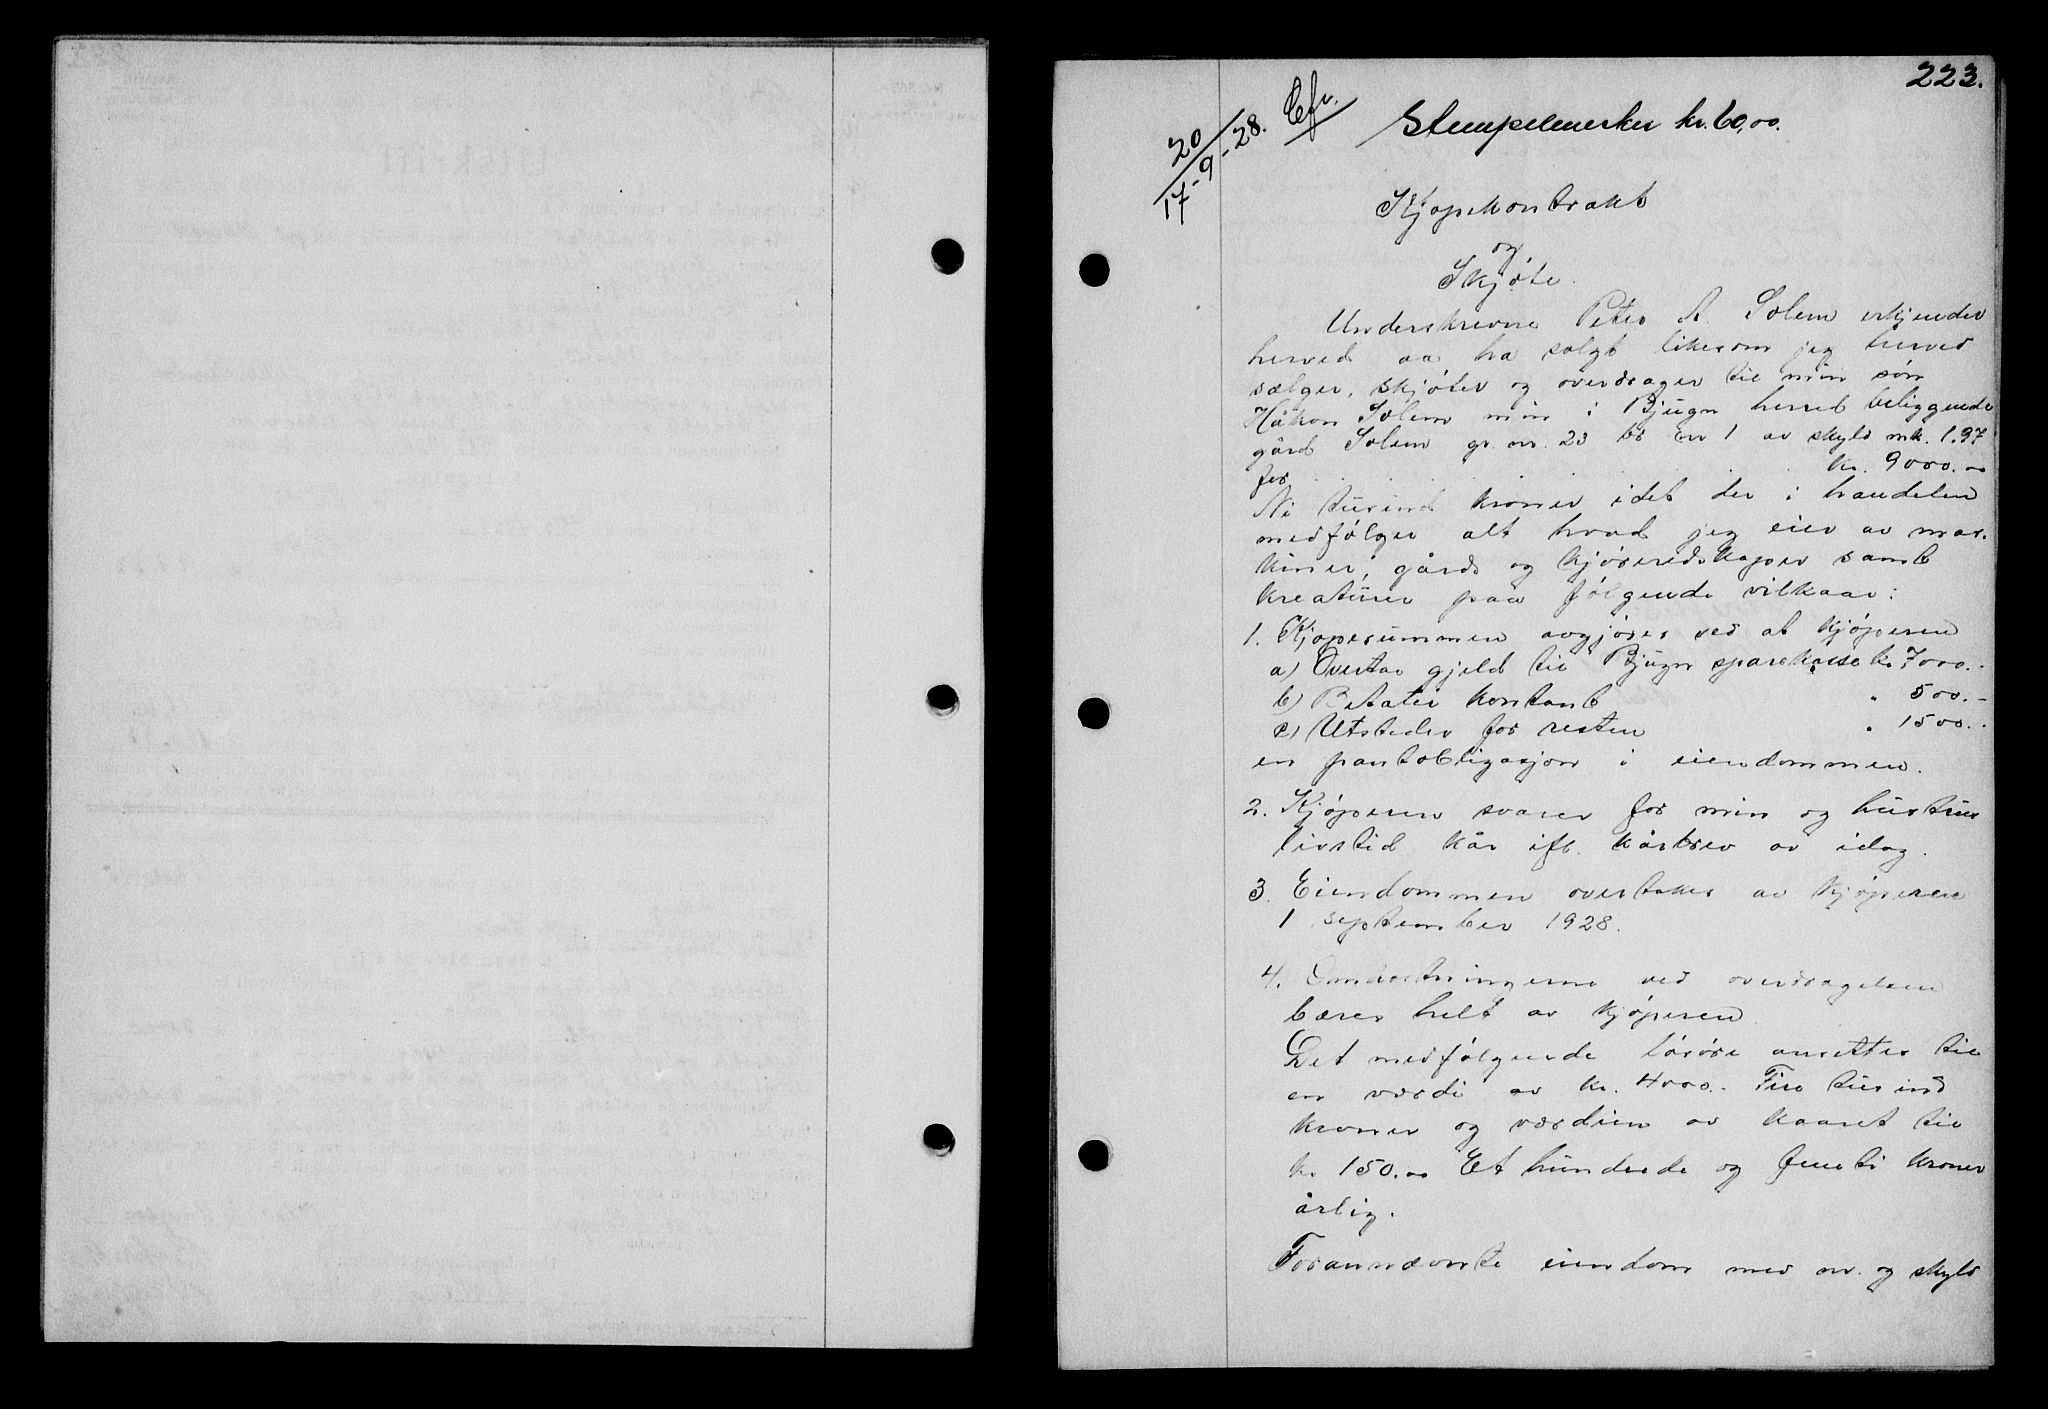 223.
20
17-9-28. Efr.
Stempelmerker kr. 60,00.
Kjøpekontrakt
og
Skjøte.
Underskrevne Peter A. Solem erkjender
herved aa ha solgt likesom jeg herved
sælger, skjøter og overdrager til min søn
Håkon Solem min i Bjugn herred beliggende
gård Solem gr. nr. 23 br nr 1 av skyld mk. 1.97
for . . . . . . . . kr. 9000.00
Ni tusind kroner idet der i handelen
medfølger alt hvad jeg eier av mas-
kiner, gårds og kjøreredskaper samt
kreaturer paa følgende vilkaar:
1. Kjøpesummen avgjøres ved at kjøperen
a) Overtar gjeld til Bjugn sparekasse kr 7000.-
b) Betaler kontant " 500.-
c) Utsteder for resten " 1500.-
en pantobligasjon i eiendommen.
2. Kjøperen svarer for min og hustrus
livstid kår ifl. kårbrev av idag.
3. Eiendommen overtakes av kjøperen
1 september 1928.
4. Omkostningerne ved overdragelsen
bæres helt av kjøperen.
Det medfølgende løsøre ansettes til
en værdi av kr. 4000.- Fire tusind
kroner og værdien av kaaret til
kr 150.00 Et hundrede og femti kroner
årlig.
Forannævnte eiendom med nr. og skyld